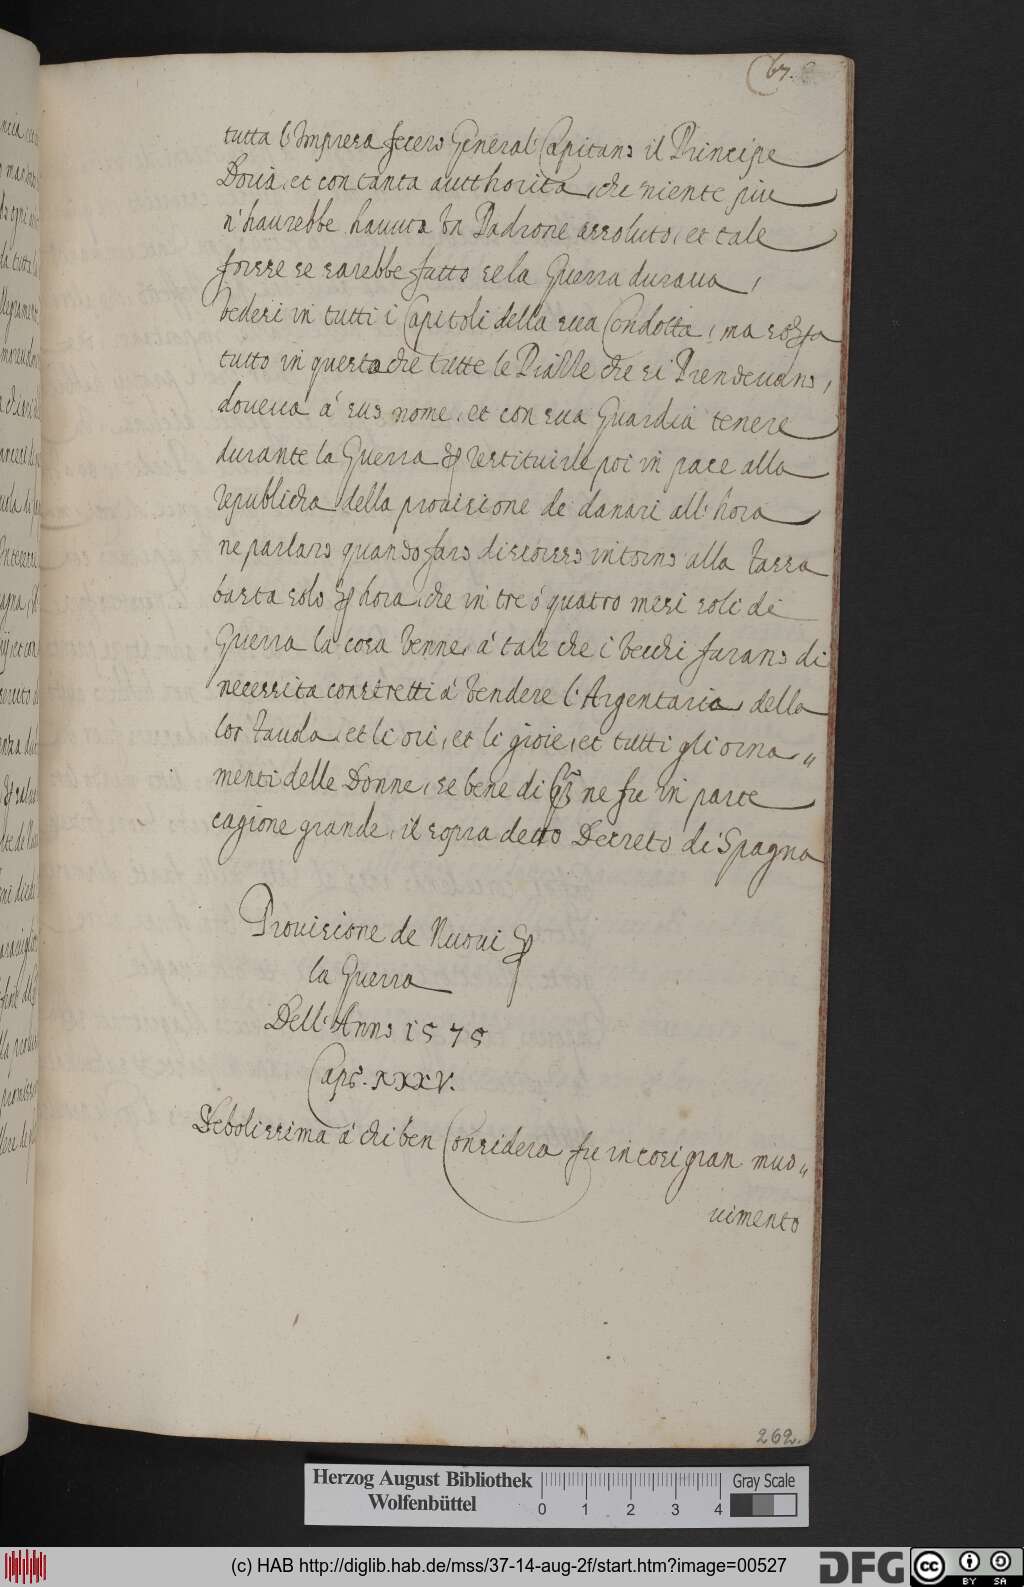 67.
tutta l'Impresa fecero General Capitano il Principe
Doria, et con tanta authorità, che niente piu
n'haurebbe hauuto un Padrone assoluto, et tale
forse se sarebbe fatto se la Guerra duraua,
vedesi in tutti i Capitoli della sua Condotta, ma
tutto in questo che tutte le Piazze che si Prendeuano,
doueua à suo nome, et con sua Guardia tenere
durante la Guerra et restituirle poi in pace alla
republicha, della prouisione de danari all'hora
ne parlaro quando faro discorso intorno alla tassa
basta solo per hora, che in tre ó quatro mesi soli di
Guerra la cosa venne, á tale che i vecchi furano di
necessita constretti á vendere l'Argentaria, della
lor tauola, et li ori, et le gioie, et tutti gli orna„
menti delle Donne, se bene di ne fu in parte
cagione grande, il sopra detto Decreto di Spagna
Prouisione de Nuoui per
la Guerra
Dell'Anno 1575
Capo. XXXV.
Debolissima á chi ben Considera fu in cosi gran muo„
uimento
262.
Herzog August Bibliothek
Wolfenbüttel
0 1 2 3 4
Gray Scale
(c) HAB http://diglib.hab.de/mss/37-14-aug-2f/start.htm?image=00527
DFG
cc BY SA